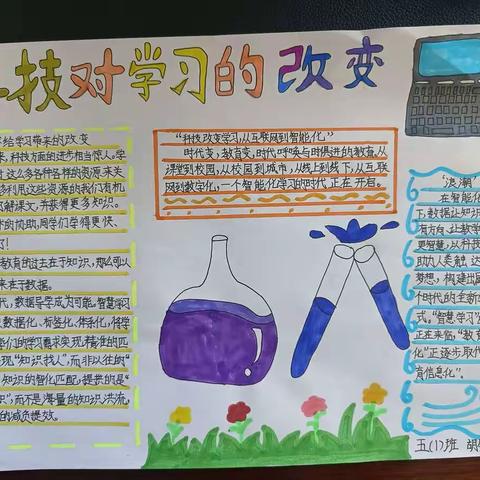 技对学习的改变
给学习带来的改变
来，科技方面的进步相当惊人。学
这么多各种各样的资源，未关
利用这些资源的我们有机
解课文，并获得更多知识。
的协助，同学们学得更快、
了！
教育的过去在于知识，那么可以
来在于数据。
代，数据导学成为可能。智慧学习
数据化、标签化、体系化，将学
们的学习需求实现精准的匹
现“知识找人”，而非以往的“
知识的智化匹配，提供的是“
识”，而不是海量的知识洪流，
的减负提效。
“科技改变学习，从互联网到智能化”
时代变，教育变，时代呼唤与时俱进的教育。从
课堂到校园，从校园到城市，从线上到线下，从互联
网到数字化，一个智能化学习的时代正在开启。
“浪潮”
在智能化
下，数据让知识
有方向，让教学
更智慧，从科技
助力人类触达
梦想，构建出属
个时代的全新的
式。“智慧学习”
正在来临，“教育
化”正逐步取代
育信息化”。
五(1)班 胡